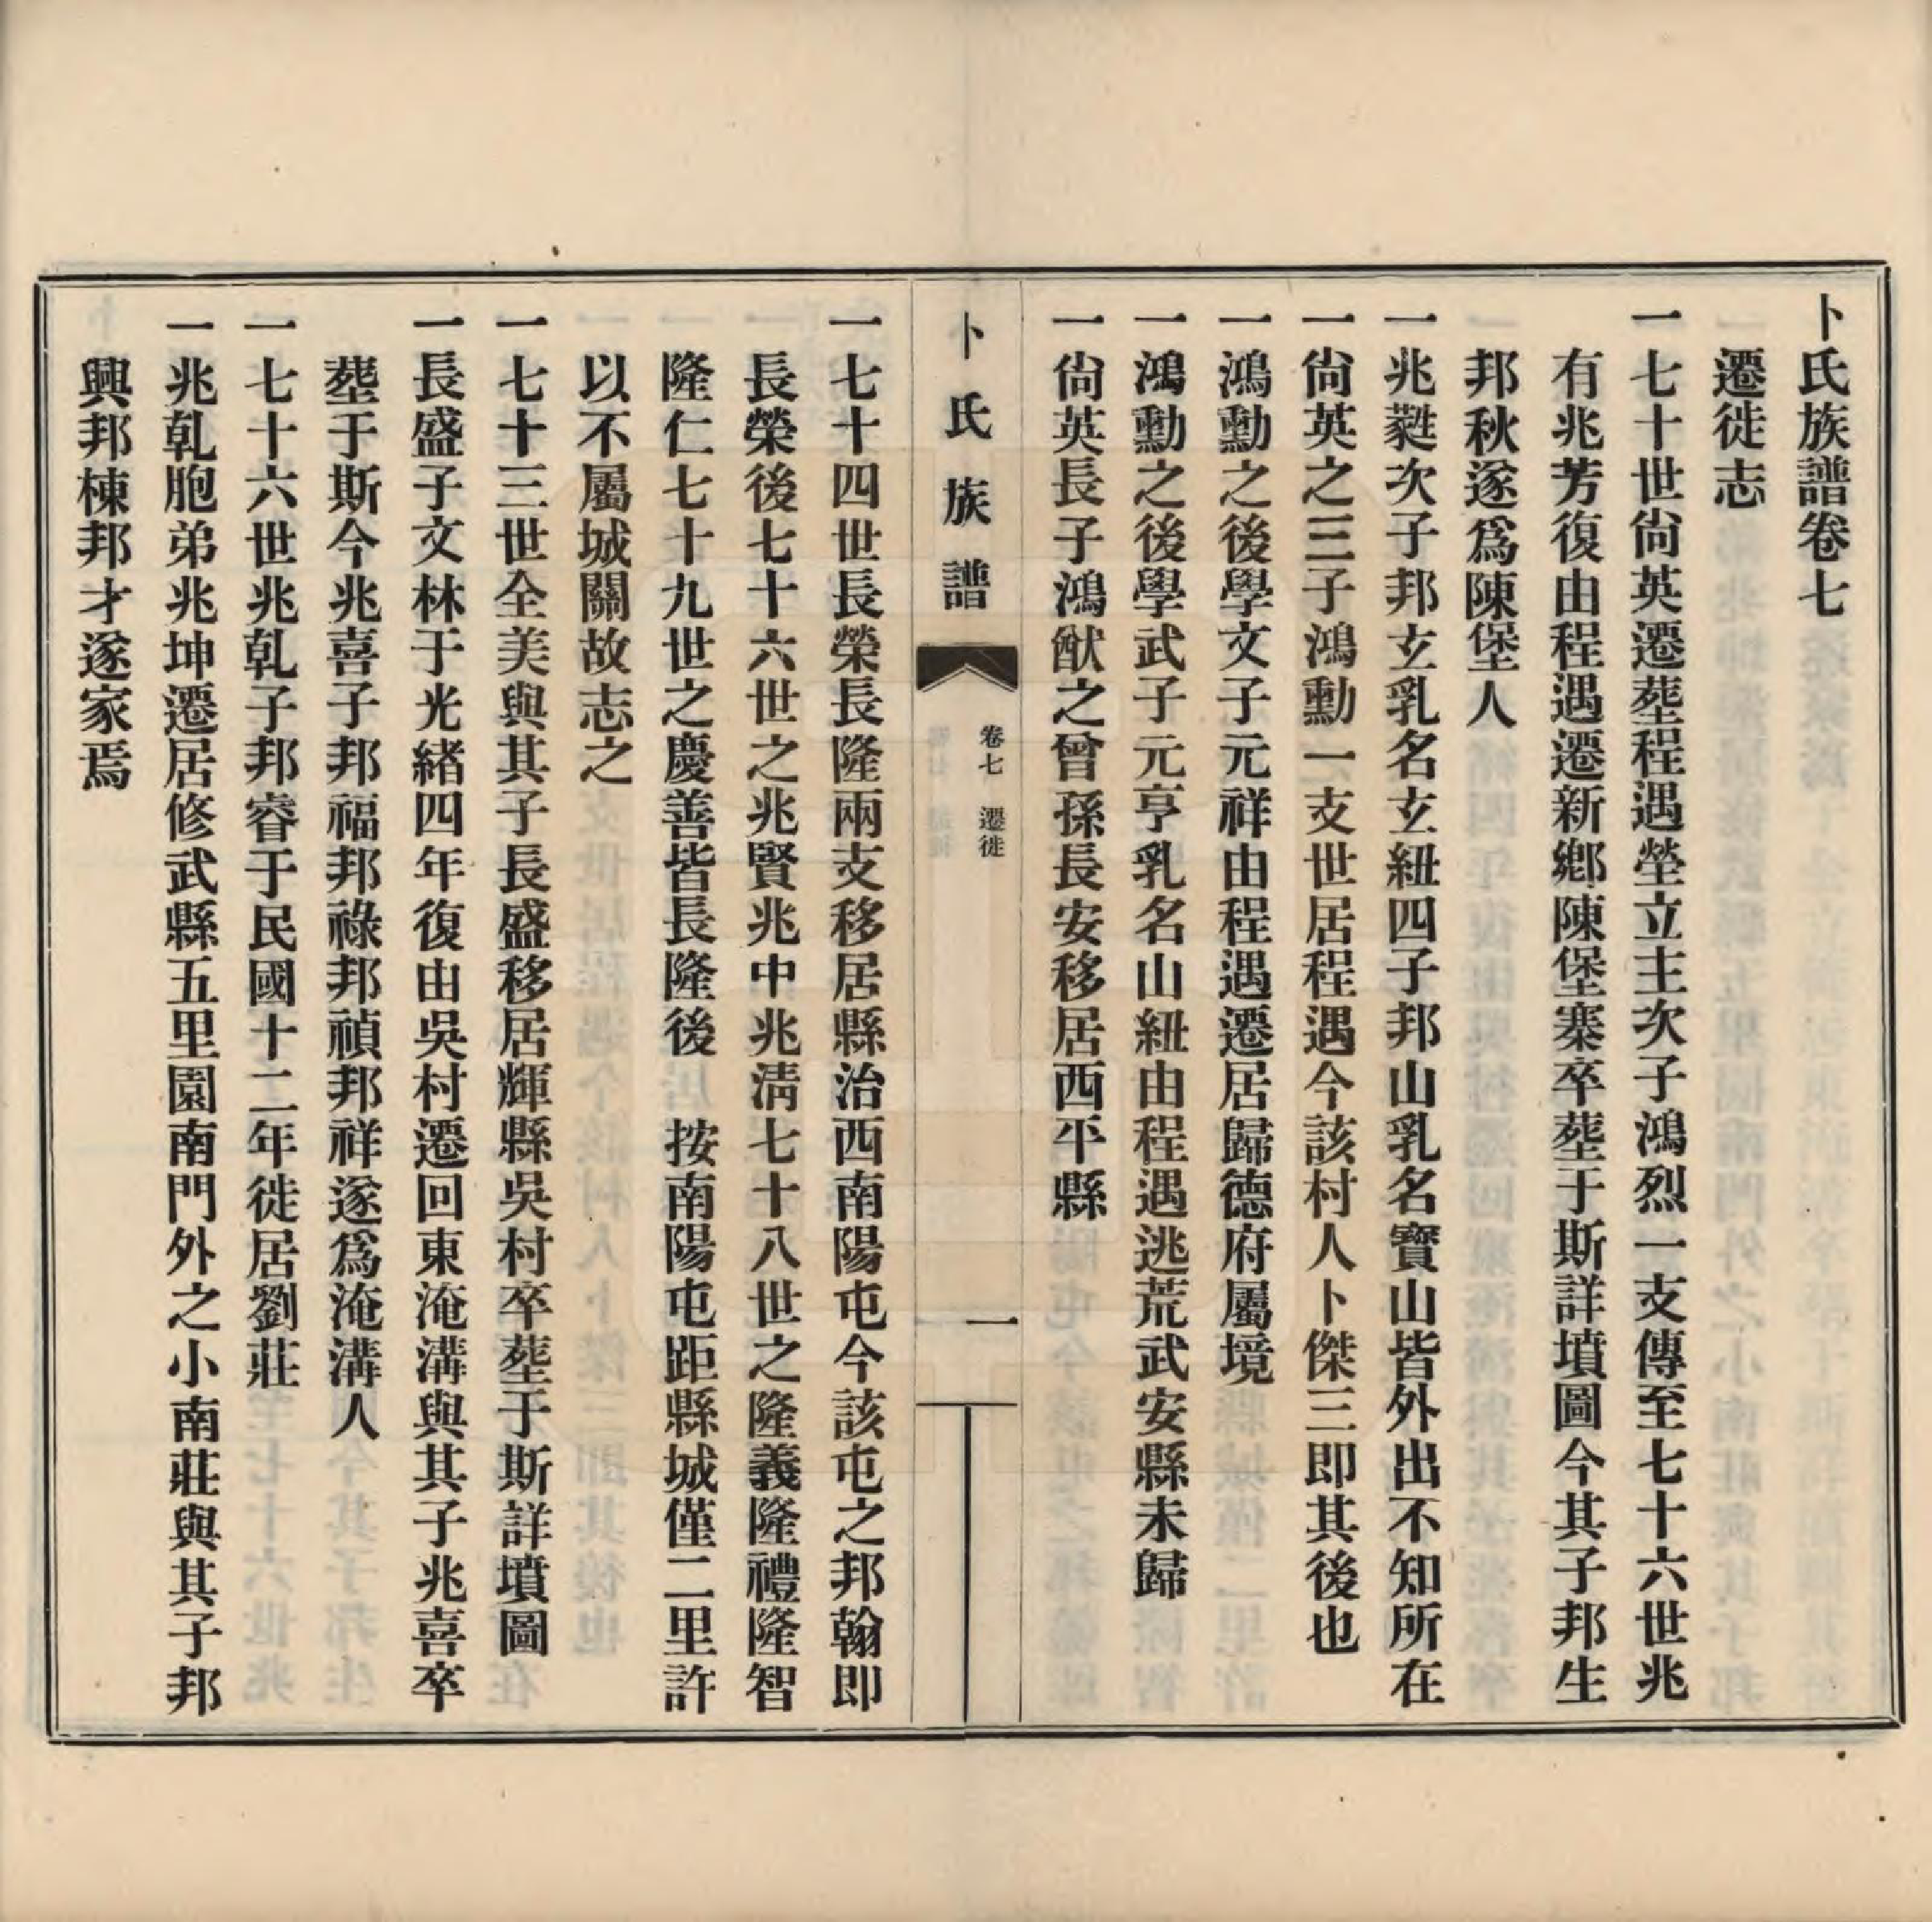 卜氏族譜卷七
遷徙志
一七十世尙英遷塟程遇塋立主次子鴻烈一支傳至七十六世兆
有兆芳復由程遇遷新鄉陳堡寨卒塟于斯詳墳圖今其子邦生
邦秋遂爲陳堡人
一兆蕤次子邦玄乳名玄紐四子邦山乳名寶山皆外出不知所在
一尙英之三子鴻勳一支世居程遇今該村人卜傑三即其後也
一鴻勳之後學文子元祥由程遇遷居歸德府屬境
一鴻勳之後學武子元亨乳名山紐由程遇逃荒武安縣未歸
一尙英長子鴻猷之曾孫長安移居西平縣
卜氏族譜
卷七 遷徙
一
一七十四世長榮長隆兩支移居縣治西南陽屯今該屯之邦翰即
長榮後七十六世之兆賢兆中兆淸七十八世之隆義隆禮隆智
隆仁七十九世之慶善皆長隆後 按南陽屯距縣城僅二里許
以不屬城關故志之
一七十三世全美與其子長盛移居輝縣吳村卒塟于斯詳墳圖
一長盛子文林于光緒四年復由吳村遷回東淹溝與其子兆喜卒
塟于斯今兆喜子邦福邦祿邦禎邦祥遂爲淹溝人
一七十六世兆乹子邦睿于民國十二年徙居劉莊
一兆乹胞弟兆坤遷居修武縣五里園南門外之小南莊與其子邦
興邦棟邦才遂家焉